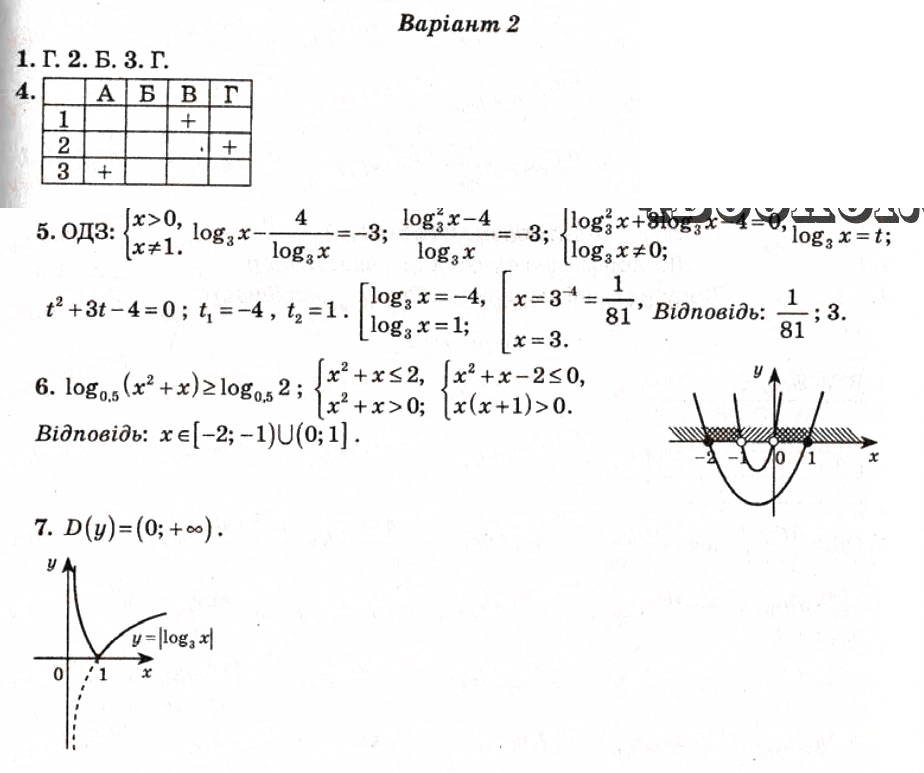 Варіант 2
1. Г. 2. Б. 3. Г.
4.
А Б В Г
1 +
2 +
3 +
5. ОДЗ: {x>0, x≠1. log₃x − 4/log₃x = −3; (log₃²x−4)/log₃x = −3; {log₃²x+3log₃x−4=0, log₃x≠0; log₃x=t;
t²+3t−4=0; t₁=−4, t₂=1. [log₃x=−4, log₃x=1; [x=3⁻⁴=1/81, x=3. Відповідь: 1/81; 3.
6. log₀,₅(x²+x)≥log₀,₅2; {x²+x≤2, x²+x>0; {x²+x−2≤0, x(x+1)>0.
Відповідь: x∈[−2;−1)∪(0;1].
y
−2 −1 0 1 x
7. D(y)=(0;+∞).
y
y=|log₃x|
0 1 x